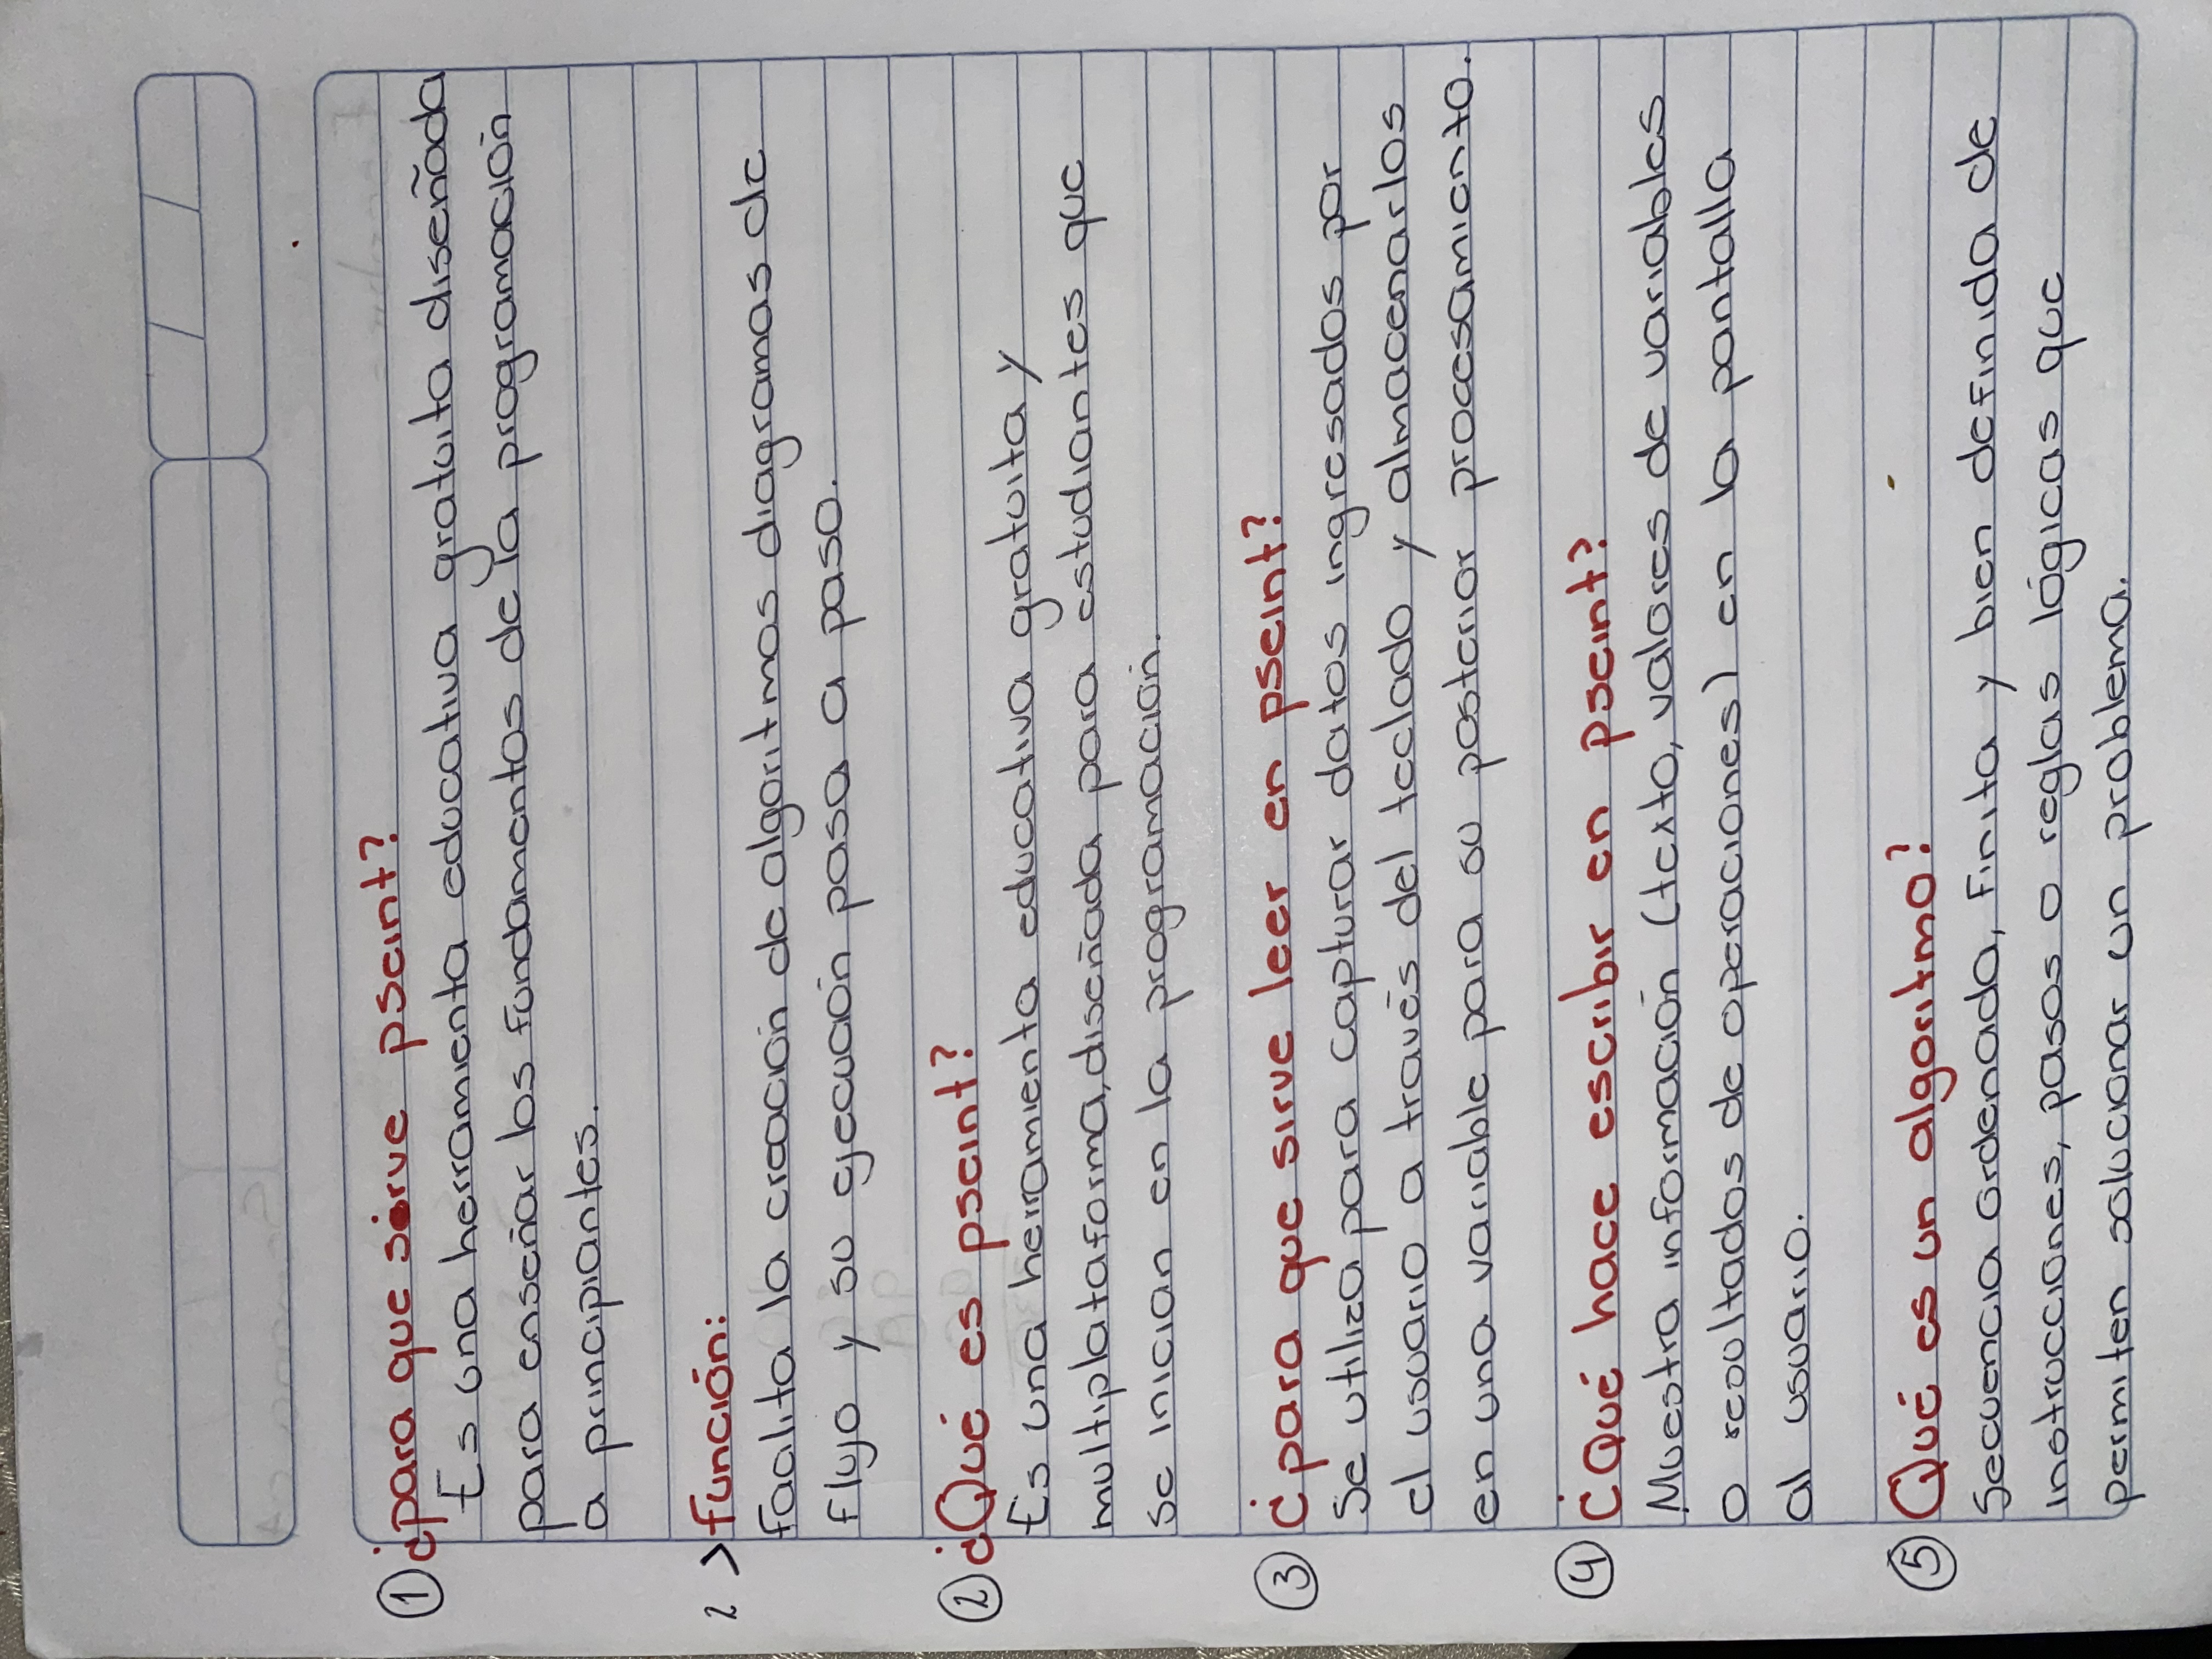 ① ¿para que sirve pseint?
Es una herramienta educativa gratuita diseñada
para enseñar los fundamentos de la programación
a principiantes.
> función:
facilita la creación de algoritmos diagramas de
flujo y su ejecución paso a paso.
② ¿Qué es pseint?
Es una herramienta educativa gratuita y
multiplataforma, diseñada para estudiantes que
se inician en la programación.
③ ¿para que sirve leer en pseint?
Se utiliza para capturar datos ingresados por
el usuario a través del teclado y almacenarlos
en una variable para su posterior procesamiento.
④ ¿Qué hace escribir en pseint?
Muestra información (texto, valores de variables
o resultados de operaciones) en la pantalla
al usuario.
⑤ Qué es un algoritmo?
Secuencia ordenada, finita y bien definida de
instrucciones, pasos o reglas lógicas que
permiten solucionar un problema.